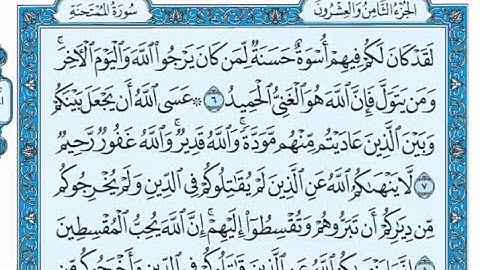 الجُزْءُ الثَّامِنُ وَالعِشْرُونَ سُورَةُ المُمْتَحنَةِ
لَقَدْ كَانَ لَكُمْ فِيهِمْ أُسْوَةٌ حَسَنَةٌ لِّمَن كَانَ يَرْجُوا۟ ٱللَّهَ وَٱلْيَوْمَ ٱلْءَاخِرَۚ
وَمَن يَتَوَلَّ فَإِنَّ ٱللَّهَ هُوَ ٱلْغَنِىُّ ٱلْحَمِيدُ ٦ ۞ عَسَى ٱللَّهُ أَن يَجْعَلَ بَيْنَكُمْ
وَبَيْنَ ٱلَّذِينَ عَادَيْتُم مِّنْهُم مَّوَدَّةًۚ وَٱللَّهُ قَدِيرٌۚ وَٱللَّهُ غَفُورٌ رَّحِيمٌ
٧ لَّا يَنْهَىٰكُمُ ٱللَّهُ عَنِ ٱلَّذِينَ لَمْ يُقَٰتِلُوكُمْ فِى ٱلدِّينِ وَلَمْ يُخْرِجُوكُم
مِّن دِيَٰرِكُمْ أَن تَبَرُّوهُمْ وَتُقْسِطُوٓا۟ إِلَيْهِمْۚ إِنَّ ٱللَّهَ يُحِبُّ ٱلْمُقْسِطِينَ